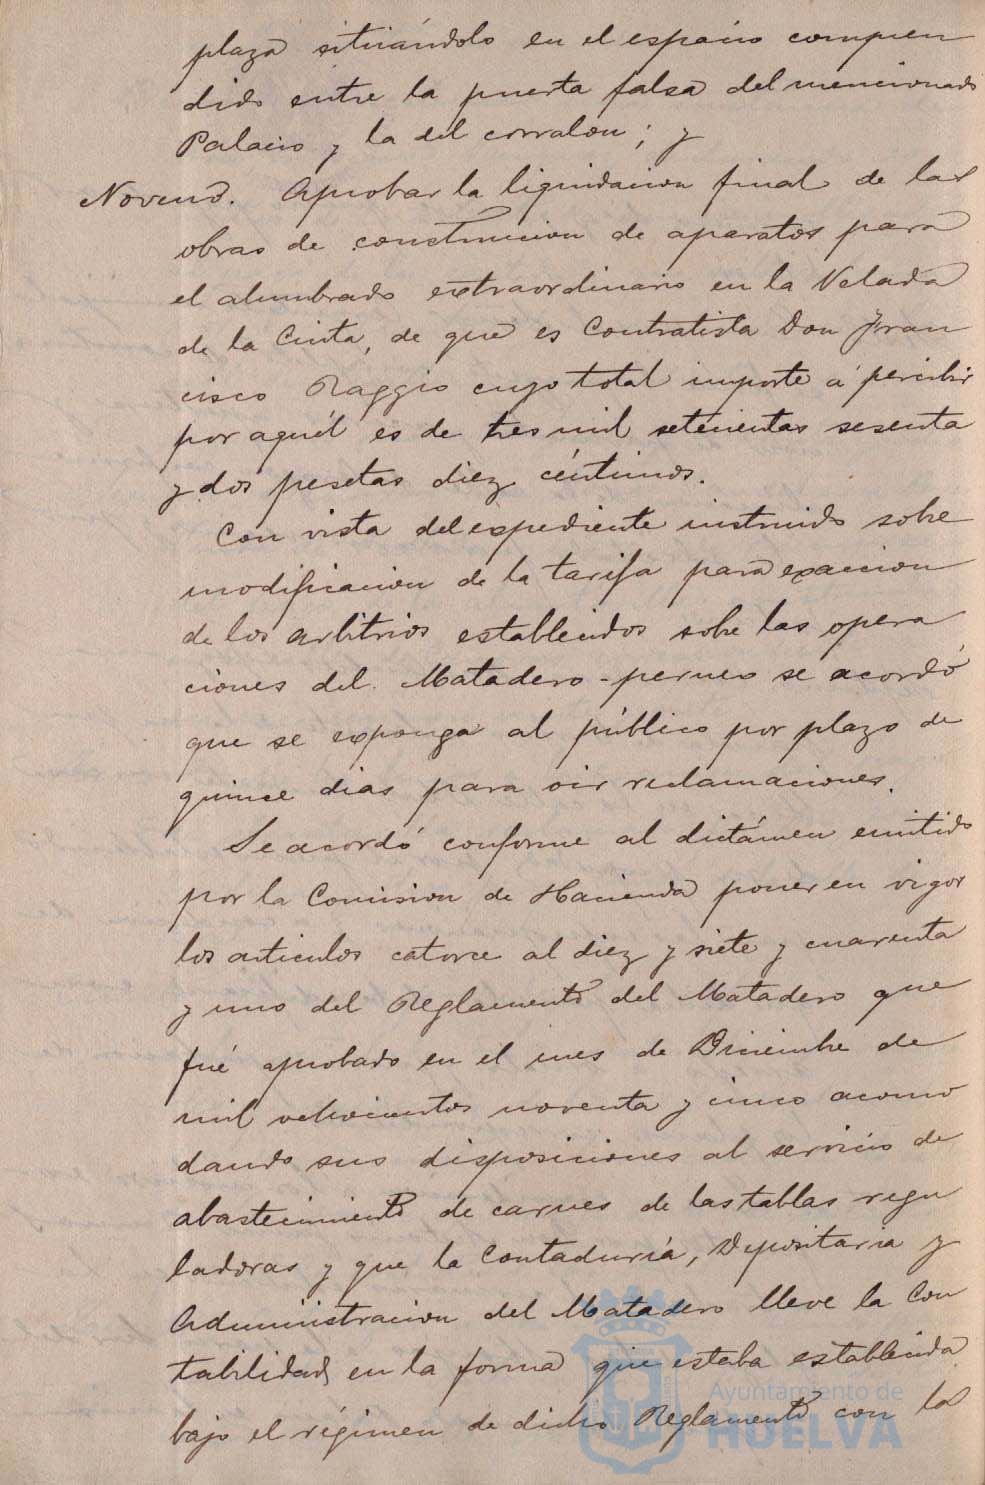 plaza situándolo en el espacio compren
dido entre la puerta falsa del mencionado
Palacio y la del corralon; y
Noveno. Aprobar la liquidacion final de las
obras de construccion de aparatos para
el alumbrado extraordinario en la Velada
de la Cinta, de que es Contratista Don Fran
cisco Raggio cuyo total importe á percibir
por aquél es de tres mil setecientas sesenta
y dos pesetas diez céntimos.
Con vista del expediente instruido sobre
modificacion de la tarifa para exaccion
de los arbitrios establecidos sobre las opera
ciones del Matadero se acordó
que se exponga al público por plazo de
quince dias para oir reclamaciones.
Se acordó conforme al dictámen emitido
por la Comision de Hacienda poner en vigor
los articulos catorce al diez y siete y cuarenta
y uno del Reglamento del Matadero que
fué aprobado en el mes de Diciembre de
mil ochocientos noventa y cinco acomo
dando sus disposiciones al servicio de
abastecimiento de carnes de las tablas regu
ladoras y que la Contaduría, Depositaria y
Administracion del Matadero lleve la Con
tabilidad en la forma que estaba establecida
bajo el régimen de dicho Reglamento con la
Ayuntamiento de
HUELVA